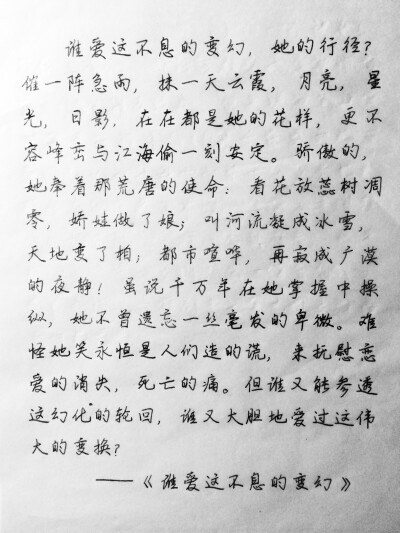 谁爱这不息的变幻，她的行径？
催一阵急雨，抹一天云霞，月亮，星
光，日影，在在都是她的花样，更不
容峰峦与江海偷一刻安定。骄傲的，
她奉着那荒唐的使命：看花放蕊树凋
零，娇娃做了娘；叫河流凝成冰雪，
天地变了相；都市喧哗，再寂成广漠
的夜静！虽说千万年在她掌握中操
纵，她不曾遗忘一丝毫发的卑微。难
怪她笑永恒是人们造的谎，来抚慰恋
爱的消失，死亡的痛。但谁又能参透
这幻化的轮回，谁又大胆地爱过这伟
大的变换？
——《谁爱这不息的变幻》